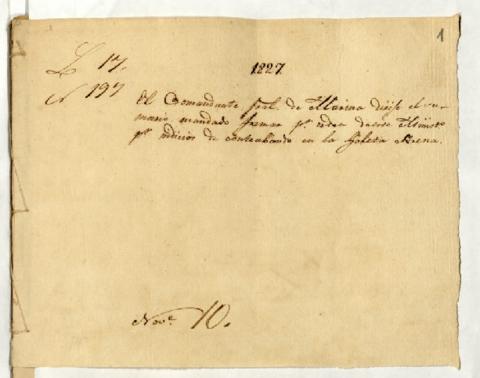 1
L 17.
N 197
1827
El Comandante Gral. de Marina dirije el su-
mario mandado formar pr. orden de ese Minist.o
pr. indicios de contrabando en la Goleta Sirena.
Nove. 10.